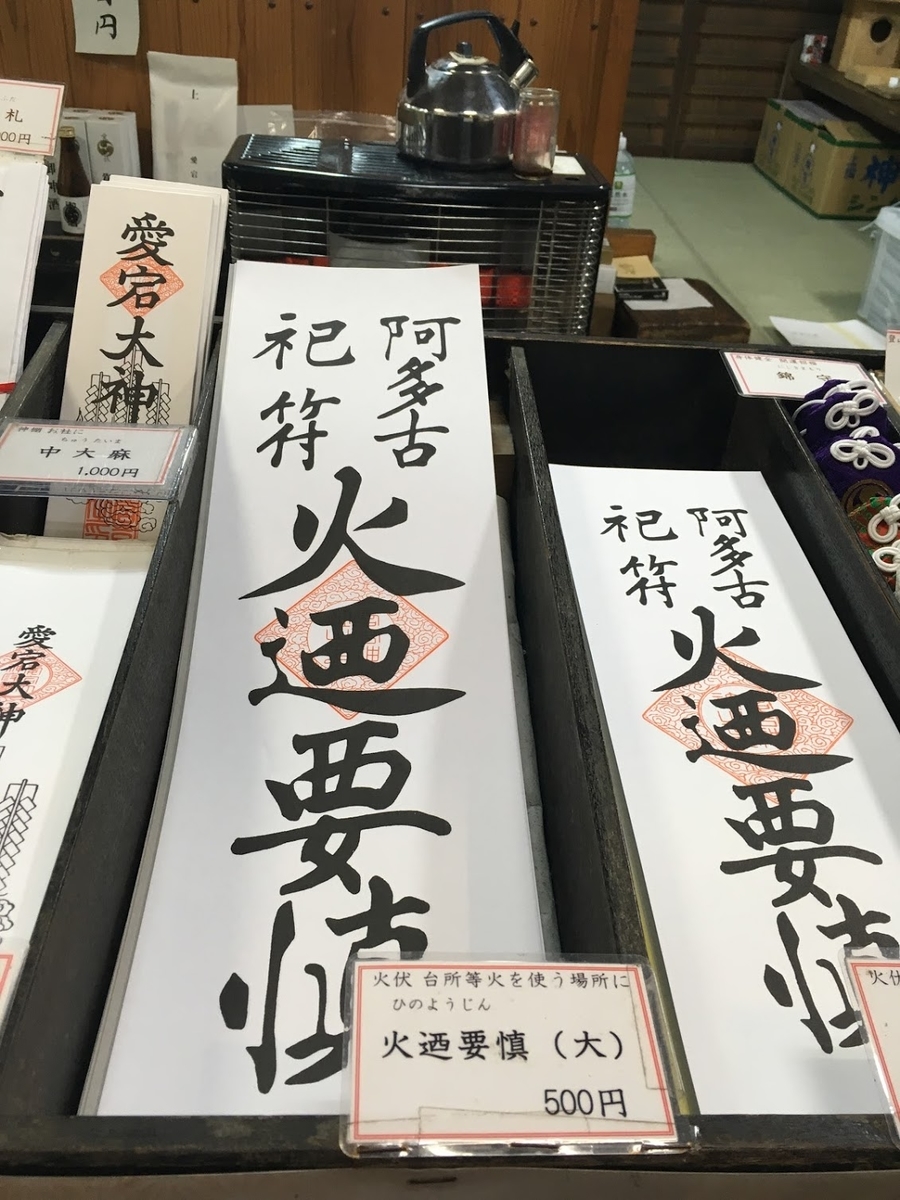 円
札
00円
上
愛宕
愛宕大神
神棚 お社に
ちゅうたいま
中大麻
1,000円
愛宕大神
阿多古
祀符
火迺要慎
火伏 台所等火を使う場所に
ひのようじん
火迺要慎(大)
500円
阿多古
祀符
火迺要慎
火伏
錦守